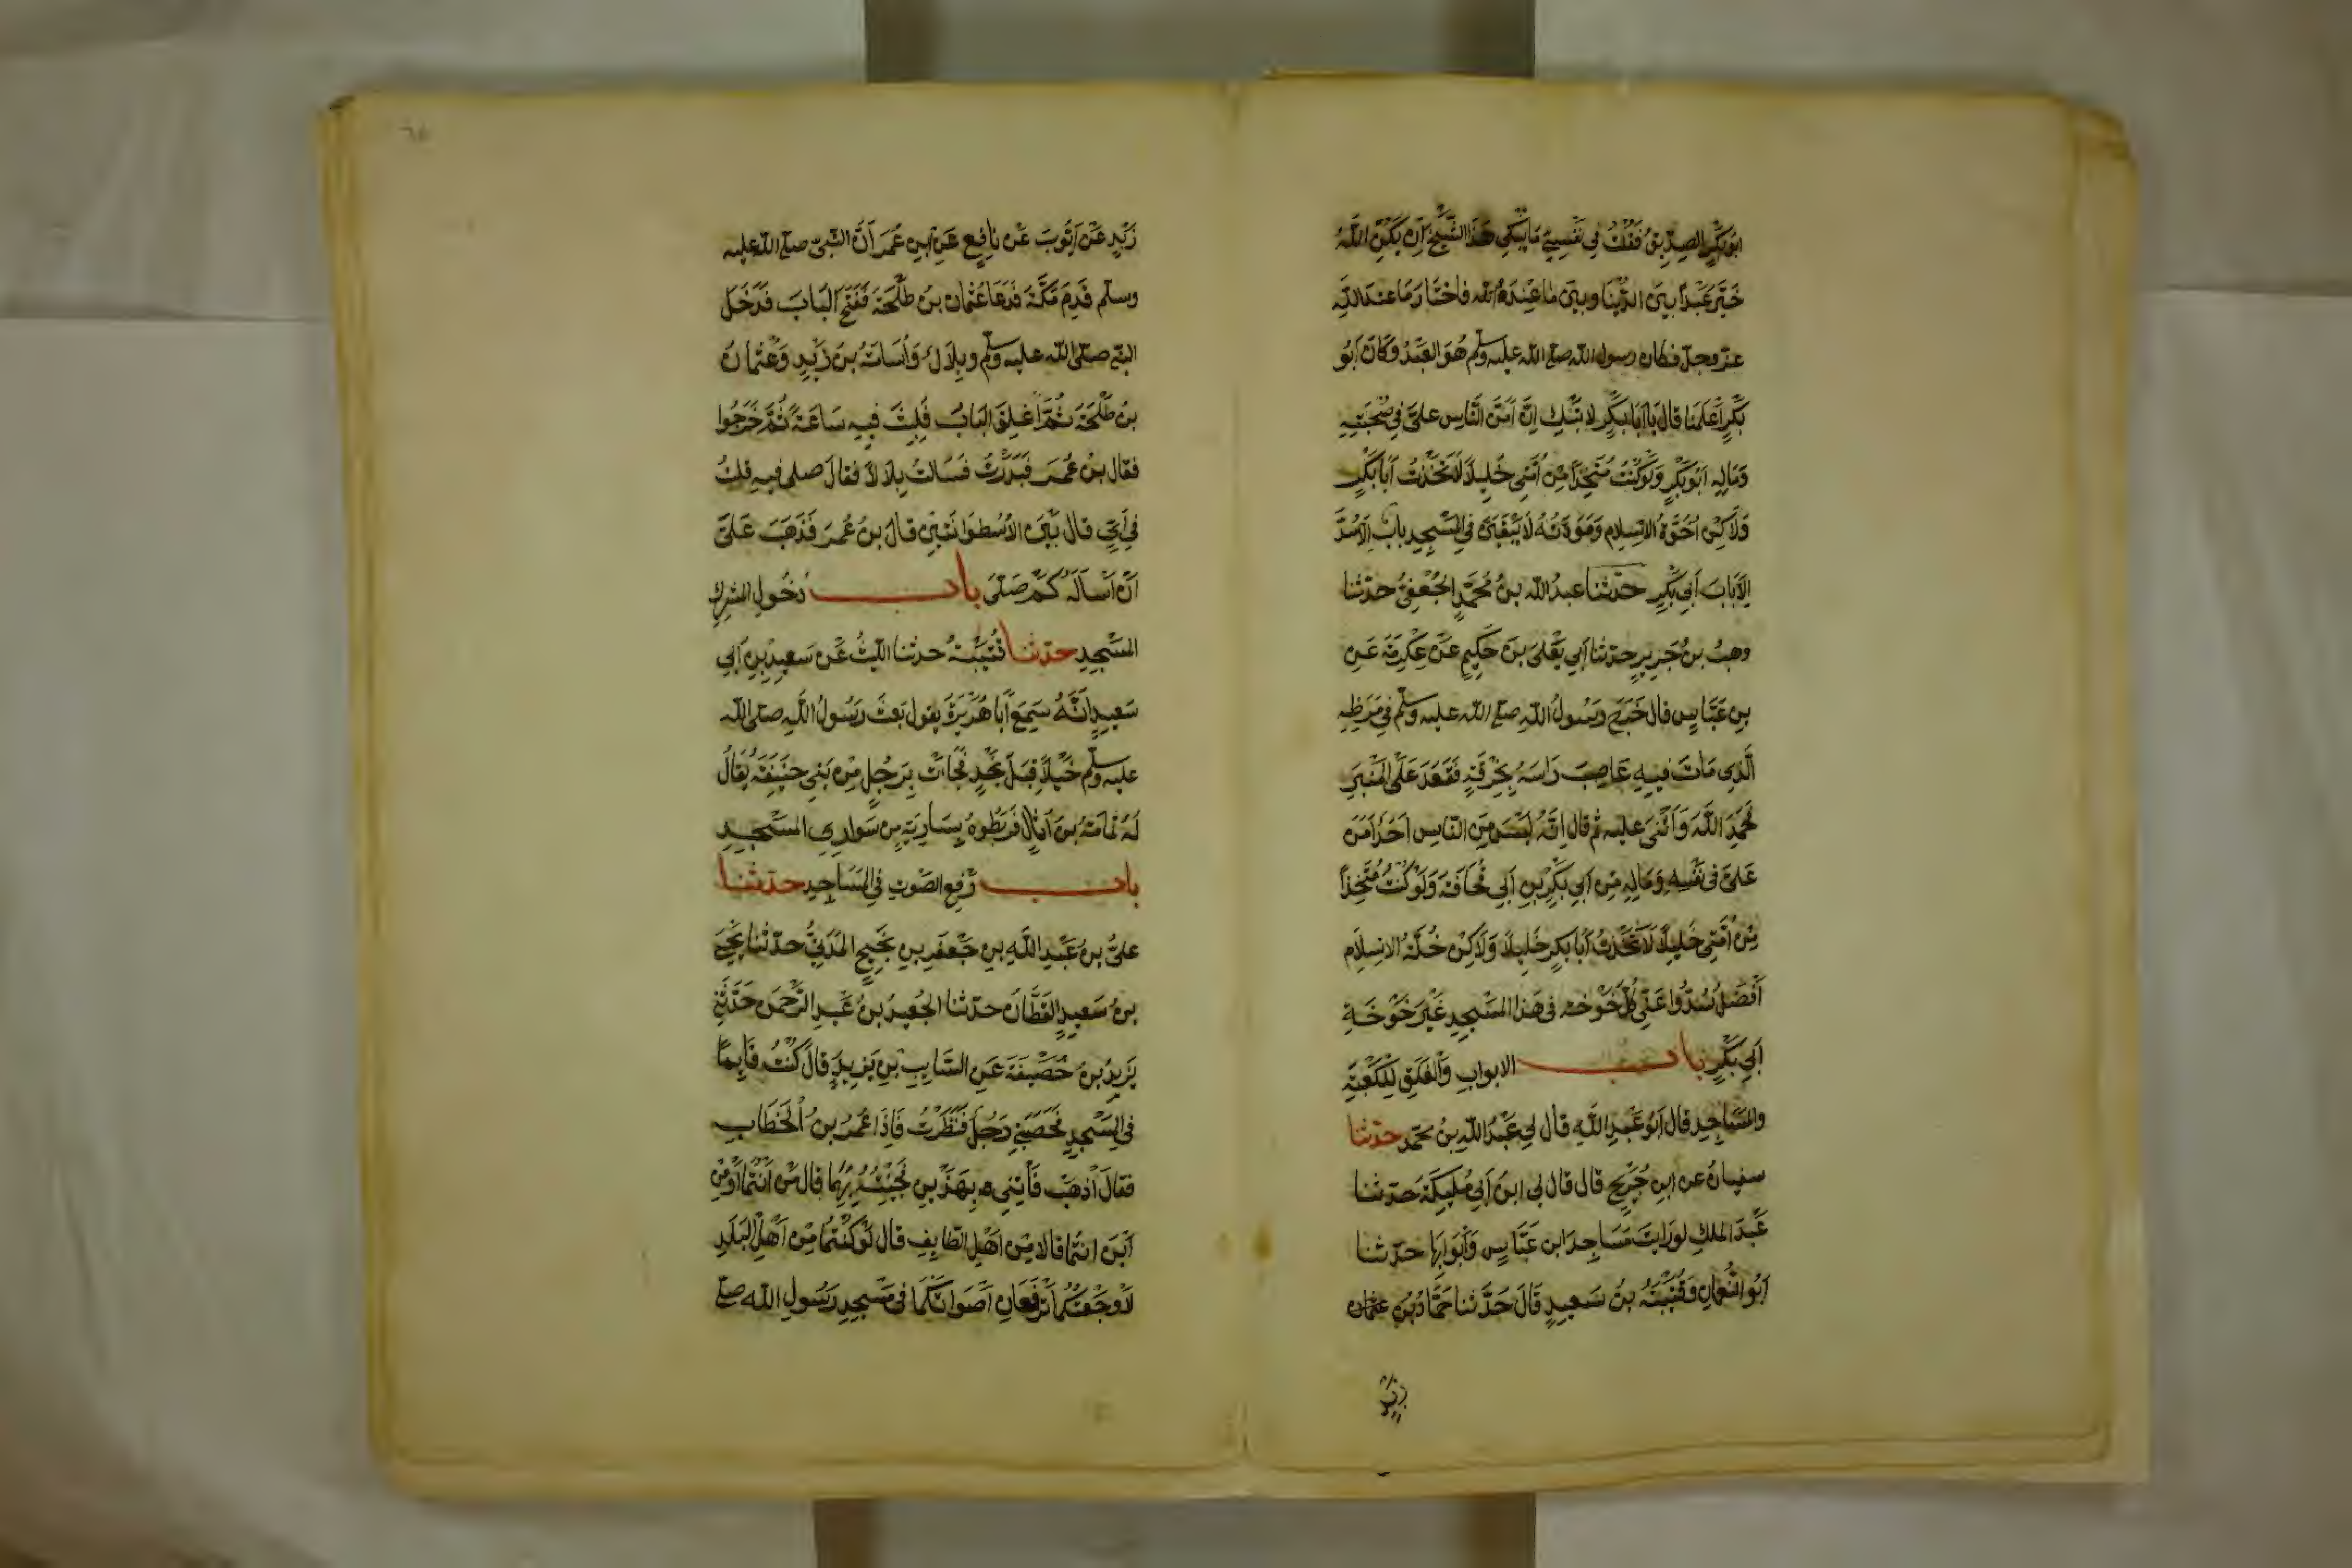 ابُو بَكْرٍ الصِدِّيقُ فَقُلْتُ فِي نَفْسِي مَا يُبْكِي هَذَا الشَّيْخَ اِنْ يَكُنِ اللَّهُ
خَيَّرَ عَبْداً بَيْنَ الدُّنْيَا وبَيْنَ مَا عِنْدَهُ فاخْتَارَ مَا عندَ اللَّهِ
عزّ وجلّ فكان رسولُ الله صلى الله عليه وسلّم هُوَ العَبْدُ وَكَانَ اَبُو
بَكْرٍ اَعْلَمَنَا قال يَا اَبَا بَكْرٍ لا تَبْكِ اِنَّ اَمَنَّ النَّاسِ علىَّ فِي صُحْبَتِهِ
وَمَالِهِ اَبُو بَكْرٍ وَلَو كُنْتُ مُتَّخِذاً مِنْ اُمَّتِى خَلِيلاً لَاتَّخَذْتُ اَبَا بَكْرٍ
وَلَاكِنْ اُخُوَّةُ الاسِلَامِ وَمَوَدَّتُهُ لَا يَبْقَيَنَّ فِي المَسْجِدِ بابٌ اِلَّا سُدَّ
اِلَّا بَابَ اَبِي بَكْرٍ حَدّثنا عبدُ الله بنُ مُحَمَّدٍ الجُعْفِىُّ حدّثنا
وهبُ بنُ جَرِيرٍ حدّثنا اَبِي يَعْلَى بْنَ حَكِيمٍ عَنْ عِكْرِمَةَ عَنِ
بنِ عَبَّاسٍ قال خَرَجَ رَسُولُ اللهِ صلى الله عليه وسلّم فِي مَرَضِهِ
الَّذِي مَاتَ فيهِ عَاصِبَ رَاسَهُ بِخِرْقَةٍ فَقَعَدَ عَلَى المِنْبَرِ
فَحَمِدَ اللَّهَ وَاَثْنَى عليه ثم قال اِنَّهُ لَيْسَ مِنَ النَّاسِ اَحَدٌ اَمَنَّ
عَلَىَّ فى نَفْسِهِ وَمَالِهِ مِنْ اَبِي بَكْرِ بْنِ اَبِي قُحَافَةَ وَلَوْ كُنْتُ مُتَّخِذاً
مِنْ اُمَّتِى خَلِيلاً لَاتَّخَذْتُ اَبَا بَكرٍ خَلِيلاً وَلَاكِنْ خُلَّةُ الاسِلَامِ
اَفْضَلُ سُدُّوا عَنِّى كُلَّ خَوْخَةٍ فى هَذَا المَسْجِدِ غَيْرَ خَوْخَةِ
اَبِي بَكْرٍ باب الابوابِ وَالْغَلَقِ لِلْكَعْبَةِ
والمَسَاجِدِ قال اَبُو عَبْدِ اللَّهِ قال لِي عَبْدُ اللَّهِ بنُ مُحَمَّدٍ حدّثنا
سفيانُ عن ابنِ جُرَيْجٍ قال قال لِي ابنُ اَبِي مُلَيْكَةَ حَدّثنا
عَبْدَ الملكِ لو رَاَيتَ مَسَاجِدَ ابن عَبَّاسٍ وَاَبْوَابَهَا حدّثنا
اَبُو النُّعْمانِ وَقُتَيْبَةُ بنُ سَعيدٍ قَالَ حَدَّثنا حَمَّادُ بْنُ عثمان
زَيْد
زَيْدٍ عَنْ اَيُّوبَ عَن نافِعٍ عَنِ ابنِ عُمَرَ اَنَّ النَّبىّ صلى الله عليه
وسلّم قَدِمَ مَكَّةَ فَدَعَا عُثْمانَ بنَ طَلْحَةَ فَفَتَحَ البَابَ فَدَخَلَ
النبّى صلّى الله عليه وسلّم وبِلَالٌ وَاُسَامَةُ بنُ زَيْدٍ وَعُثْمانُ
بنُ طَلْحَةَ ثُمَّ اُغلِقَ البَابُ فَلَبِثَ فيه سَاعَةً ثُمَّ خَرَجُوا
فقال بنُ عُمَرَ فَبَدَرْتُ فسَالتُ بِلَالاً فقالَ صلى فيهِ فقلتُ
فِي اَيٍّ قال بَيْنَ الاُسْطُوَانَتَيْنِ قالَ بنُ عُمَرَ فَذَهَبَ عَلَىَّ
اَنْ اَسْاَلَهُ كَمْ صَلَّى باب دُخُولِ المشرِكِ
المَسْجِدِ حدّثنا قُتَيْبَةُ حدثنا اللَّيثُ عَنْ سَعِيدِ بنِ اَبِي
سَعيدٍ اَنَّهُ سَمِعَ اَبَا هُرَيْرَةَ يقول بَعَثَ رَسُولُ اللَّهِ صلّى الله
عليه وسلّم خَيْلاً قِبَلَ نَجْدٍ فَجَاءَتْ بِرَجُلٍ مِنْ بَنِي حَنِيفَةَ يُقَالُ
لَهُ ثُمَامَةُ بنُ اُثَالٍ فَرَبَطُوهُ بِسَارِيَةٍ مِن سَوَارِي المسْجِدِ
باب رَفعِ الصَّوتِ فِي المَسَاجِدِ حدّثنا
علىُّ بنُ عَبْدِ اللَّهِ بنِ جَعْفَرِ بنِ نَجِيحٍ المَدَنِىُّ حدّثنا يَحْيَى
بنُ سَعيدٍ القَطَّانُ حدّثنا الجُعَيدُ بنُ عَبدِ الرَّحْمنِ حَدَّثَنِى
يَزِيدُ بنُ خُصَيْفَةَ عَنِ السَّايِبِ بْنِ يَزِيدٍ قالَ كُنْتُ قَايِمًا
فِي المَسْجِدِ فَحَصَبَنِي رَجُلٌ فَنَظَرْتُ فَاِذَا عُمَرُ بنُ الخَطَّابِ
فقالَ اذْهَبْ فَأْتِنِي بِهَذَيْنِ فَجِئْتُهُ بِهِمَا قال مَنْ اَنْتُمَا اَوْ مِنْ
اَيْنَ انتما قالا مِن اَهْلِ الطَّايِفِ قال لَوْ كُنْتُمَا مِنْ اَهْلِ البَلَدِ
لاَوْجَعْتُكُمَا تَرْفَعَانِ اَصْوَاتَكُمَا فى مَسْجِدِ رَسُولِ الله صلى